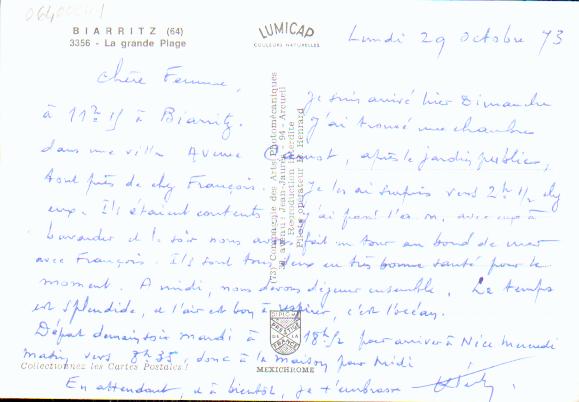 06400041
BIARRITZ (64)
3356 - La grande Plage
LUMICAP
COULEURS NATURELLES
Lundi 29 Octobre 73
Chère Femme,
Je suis arrivé hier Dimanche
à 11h 15 à Biarritz. J'ai trouvé une chambre
dans une villa Avenue après le jardin public,
tout près de chez François. Je les ai surpris vers 2h 1/2 chez
eux. Ils étaient contents j'ai passé l'a.m. avec eux à
bavarder et le soir nous avons fait un tour au bord de mer
avec François. Ils sont tous deux en très bonne santé pour le
moment. A midi, nous devons déjeuner ensemble. Le temps
est splendide, et l'air est bon à respirer, c'est l'océan.
Départ demain soir mardi à 18h 1/2 pour arriver à Nice Mercredi
matin vers 8h35, donc à la maison pour Midi
En attendant, et à bientôt, je t'embrasse
(73) Compagnie des Arts Photomécaniques
avenue Jean-Jaurès - 94 - Arcueil
Reproduction interdite
Pilote opérateur R. Henrard
Collectionnez les Cartes Postales !
MEXICHROME